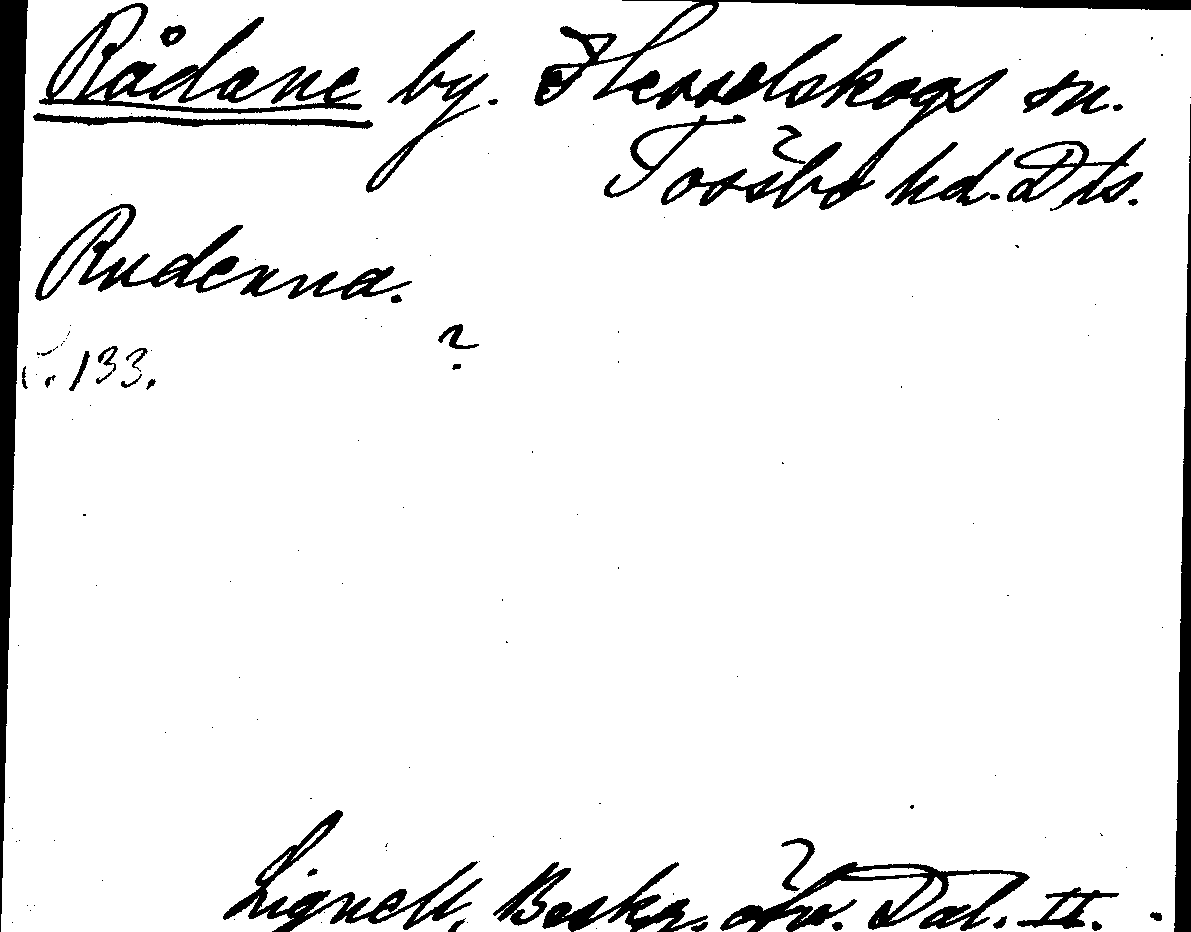 Rådane by. Hesselskogs sn.
Tössbo hd. Dls.
Rudenna.
s. 133.
?
Lignell, Beskr. öfv. Dal. II.